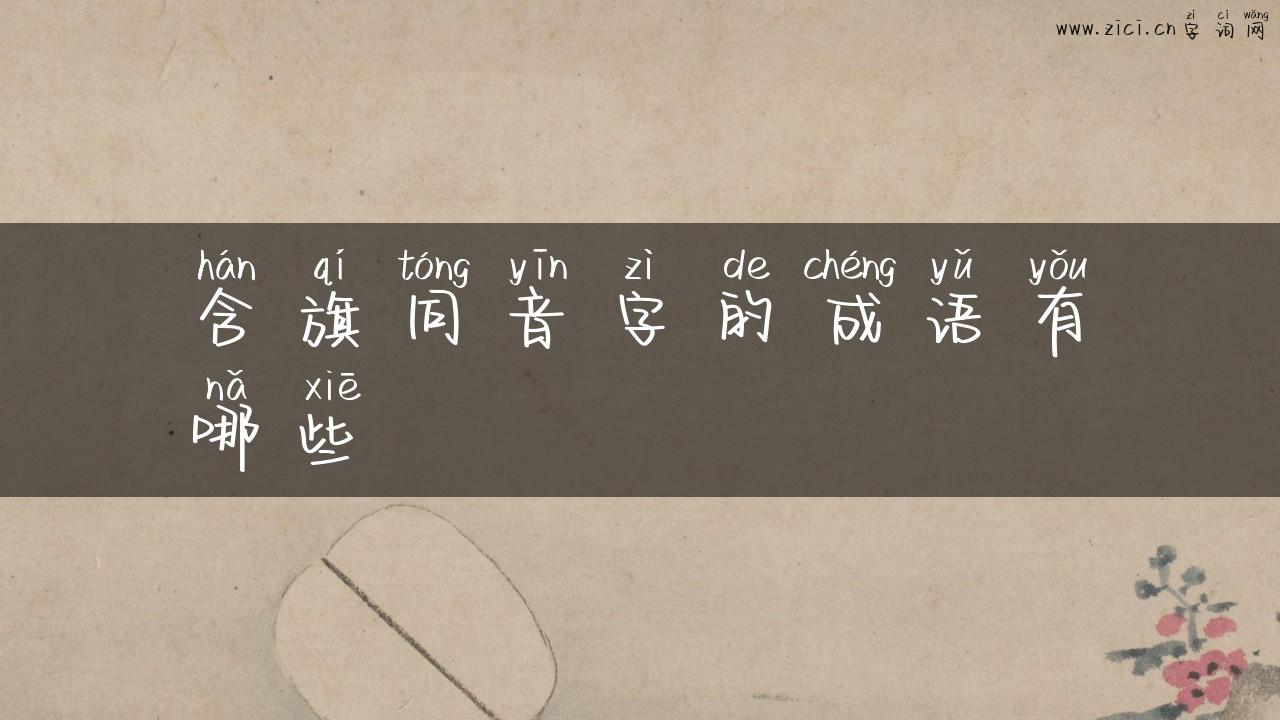 zì cí wǎng
www.zici.cn字词网
hán qí tóng yīn zì de chéng yǔ yǒu
含旗同音字的成语有
nǎ xiē
哪些